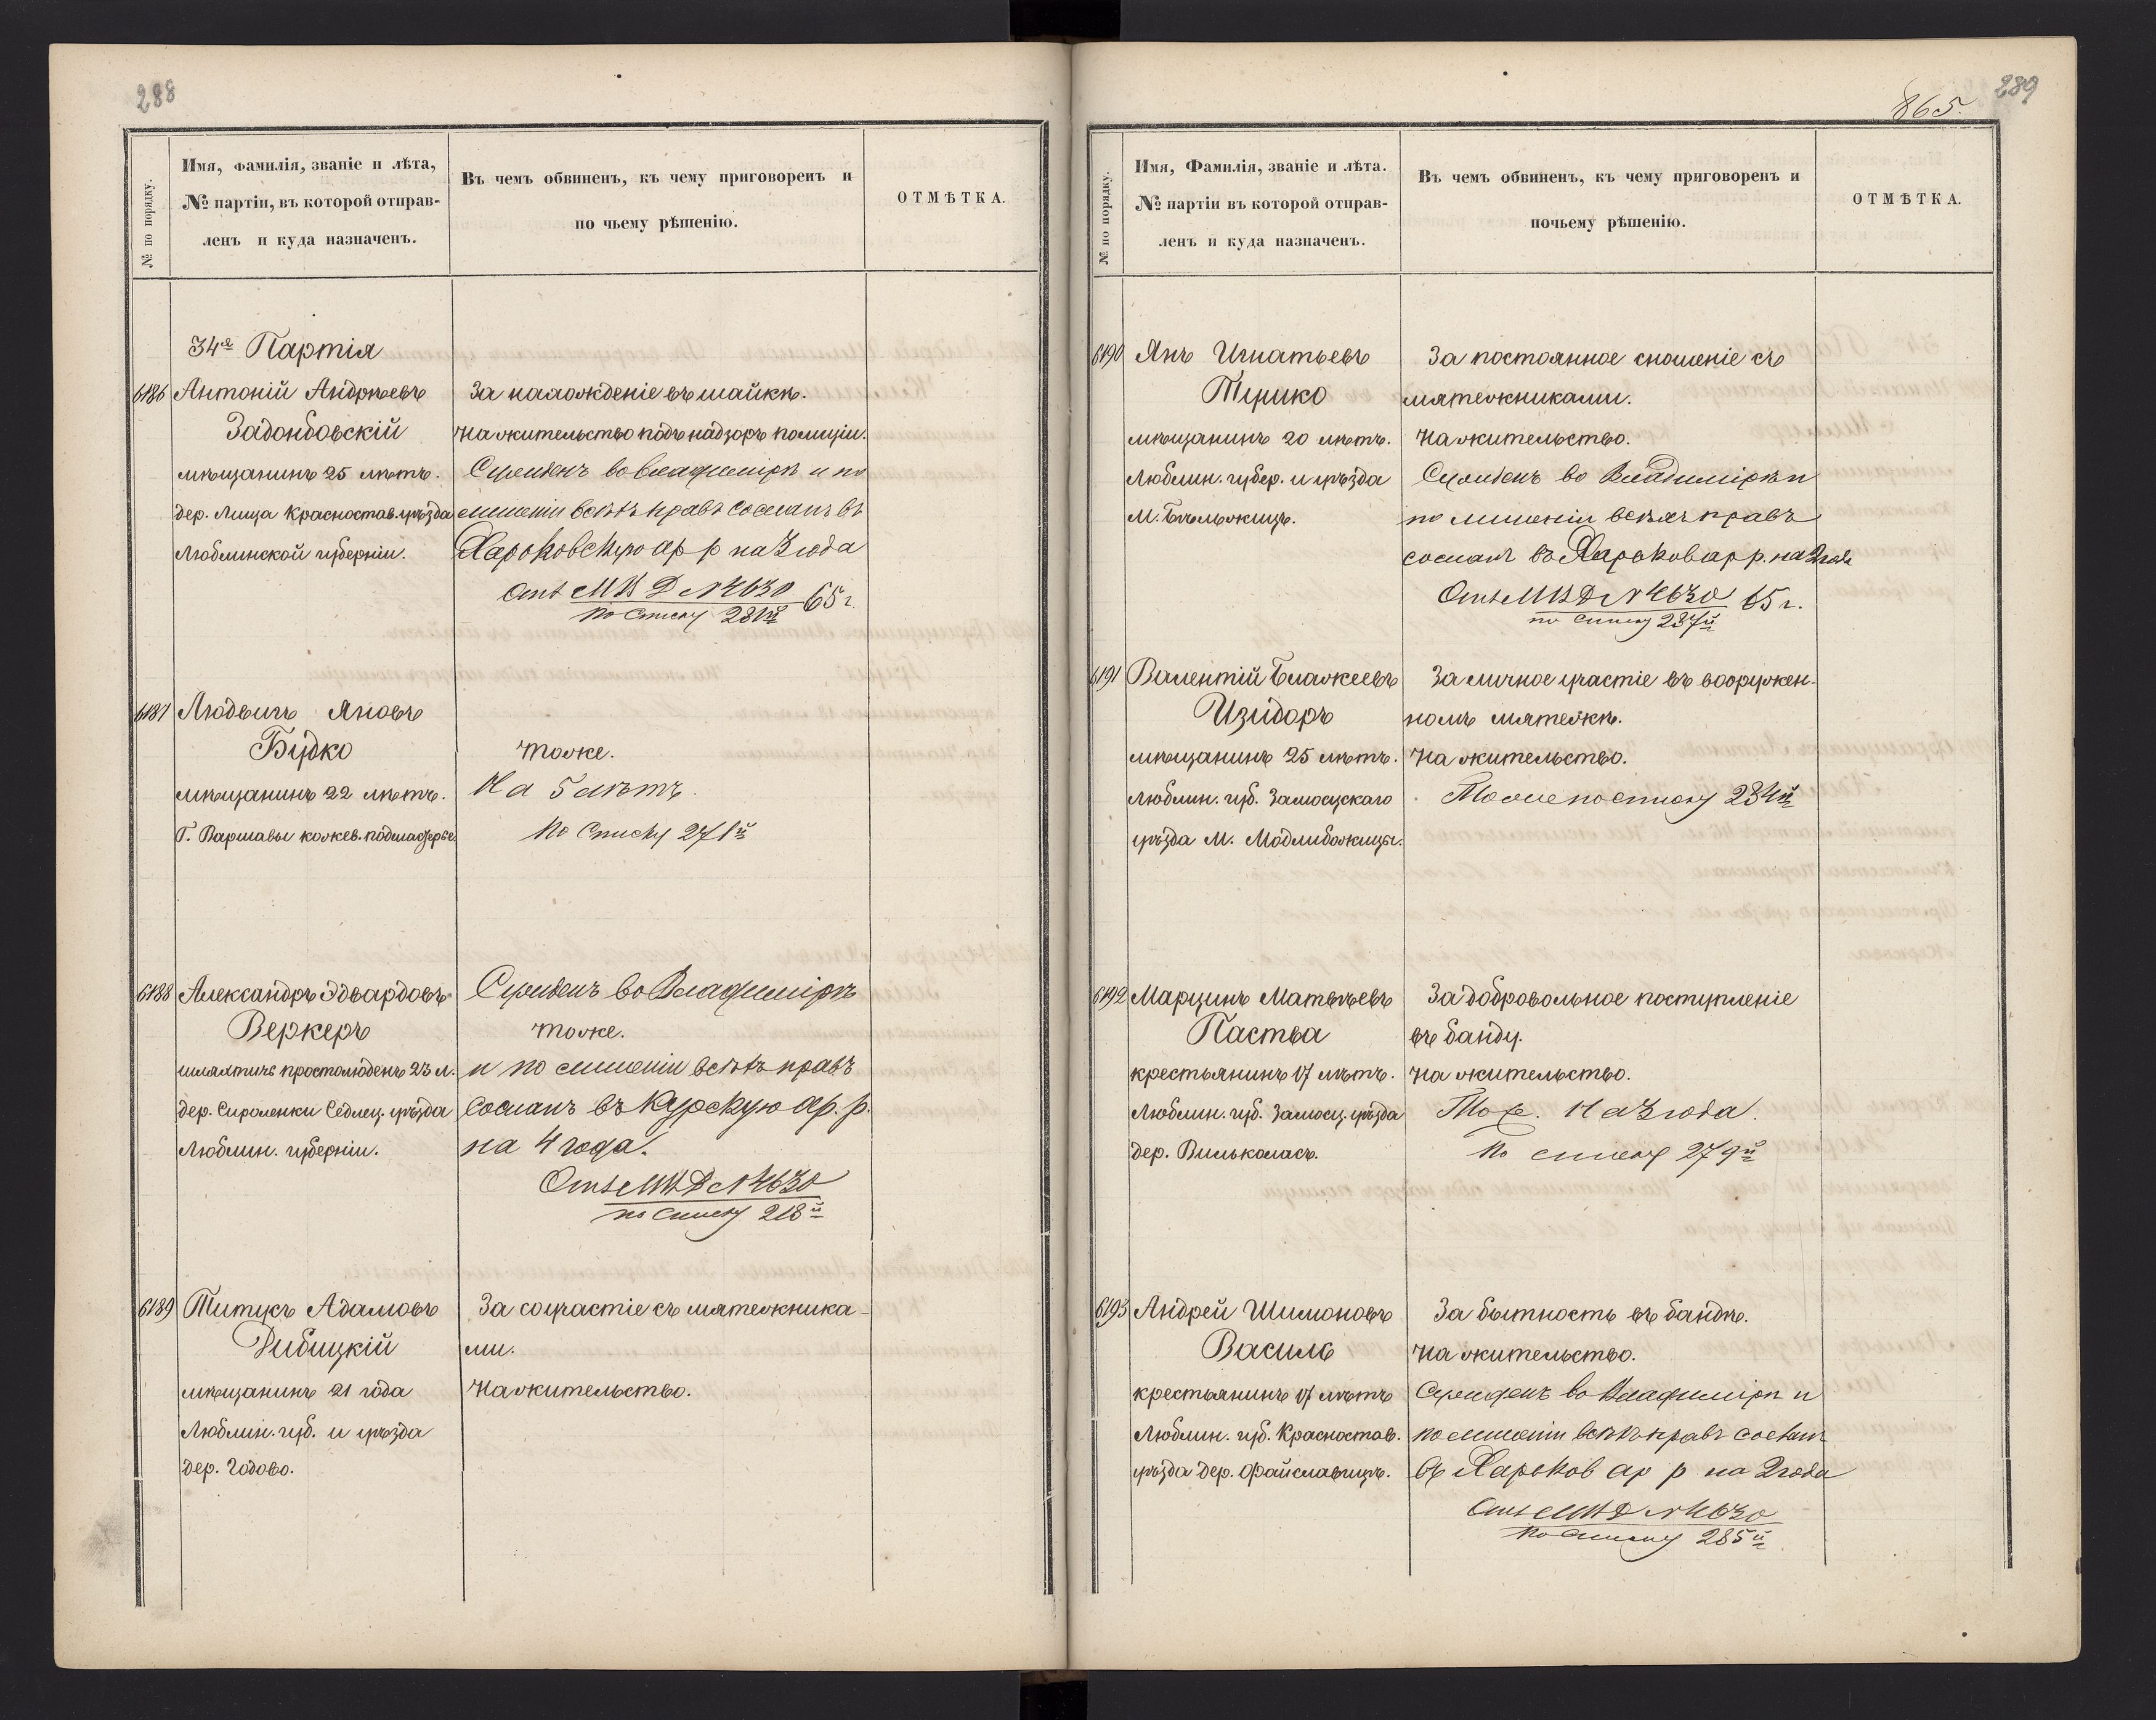 288
№ по порядку.
Имя, фамилія, званіе и лѣта,
№ партіи, въ которой отправ-
ленъ и куда назначенъ.
Въ чемъ обвиненъ, къ чему приговоренъ и
по чьему рѣшенію.
ОТМѢТКА.
34я Партія
6186 Антоній Андреевъ
Задонбовскій
мѣщанинъ 25 лѣтъ.
дер. Лища Красностав. уѣзда
Люблинской губерніи.
За нахожденіе въ шайкѣ.
На жительство подъ надзоръ полиціи.
Сужденъ во Владимірѣ и по
лишеніи всѣхъ правъ сосланъ въ
Харьковскую ар р на 3 года
Отн МВД N 4630 65 г
по списку 281й
6187 Людвигъ Яновъ
Будко
мѣщанинъ 22 лѣтъ.
Г. Варшавы кожев. подмастерье.
тоже.
На 5 лѣтъ.
по списку 271й
6188 Александръ Эдвардовъ
Веркеръ
шляхтичъ простолюденъ 23 л.
дер. Сироленки Седлец. уѣзда
Люблин. губерніи.
Сужденъ во Владимірѣ
тоже.
и по лишеніи всѣхъ правъ
сосланъ въ Курскую ар. р.
на 4 года.
Отн МВД N 4630
по списку 218й
6189 Титусъ Адамовъ
Дибицкій
мѣщанинъ 21 года
Люблин. губ. и уѣзда
дер. Годово.
За соучастіе съ мятежника-
ми.
На жительство.
289
865.
№ по порядку.
Имя, Фамилія, званіе и лѣта.
№ партіи въ которой отправ-
ленъ и куда назначенъ.
Въ чемъ обвиненъ, къ чему приговоренъ и
почьему рѣшенію.
ОТМѢТКА.
6190 Янъ Игнатьевъ
Турико
мѣщанинъ 20 лѣтъ.
Люблин. губер. и уѣзда
М. Бѣльжицъ.
За постоянное сношеніе съ
мятежниками.
На жительство.
Сужденъ во Владимірѣ и
по лишеніи всѣхъ правъ
сосланъ въ Харьков ар р. на 2 года
Отн МВД N 4630 65 г.
по списку 287й
6191 Валентій Блажеевъ
Изидоръ
мѣщанинъ 25 лѣтъ.
Люблин. губ. Замосцскаго
уѣзда М. Модлибожицы.
За личное участіе въ вооружен-
номъ мятежѣ.
На жительство.
Тоже по списку 284й
6192 Марцинъ Матвѣевъ
Паства
крестьянинъ 17 лѣтъ.
Люблин. губ. Замосц. уѣзда
дер. Вильколасъ.
За добровольное поступленіе
въ банду.
На жительство.
Тоже. На 3 года.
По списку 279й
6193 Андрей Шимоновъ
Василь
крестьянинъ 17 лѣтъ
Люблин. губ. Красностав.
уѣзда дер. Файславицъ.
За бытность въ бандѣ.
На жительство.
Сужденъ во Владимірѣ и
по лишеніи всѣхъ правъ сосланъ
въ Харьков ар р на 2 года
Отн МВД N 4630
по списку 285й